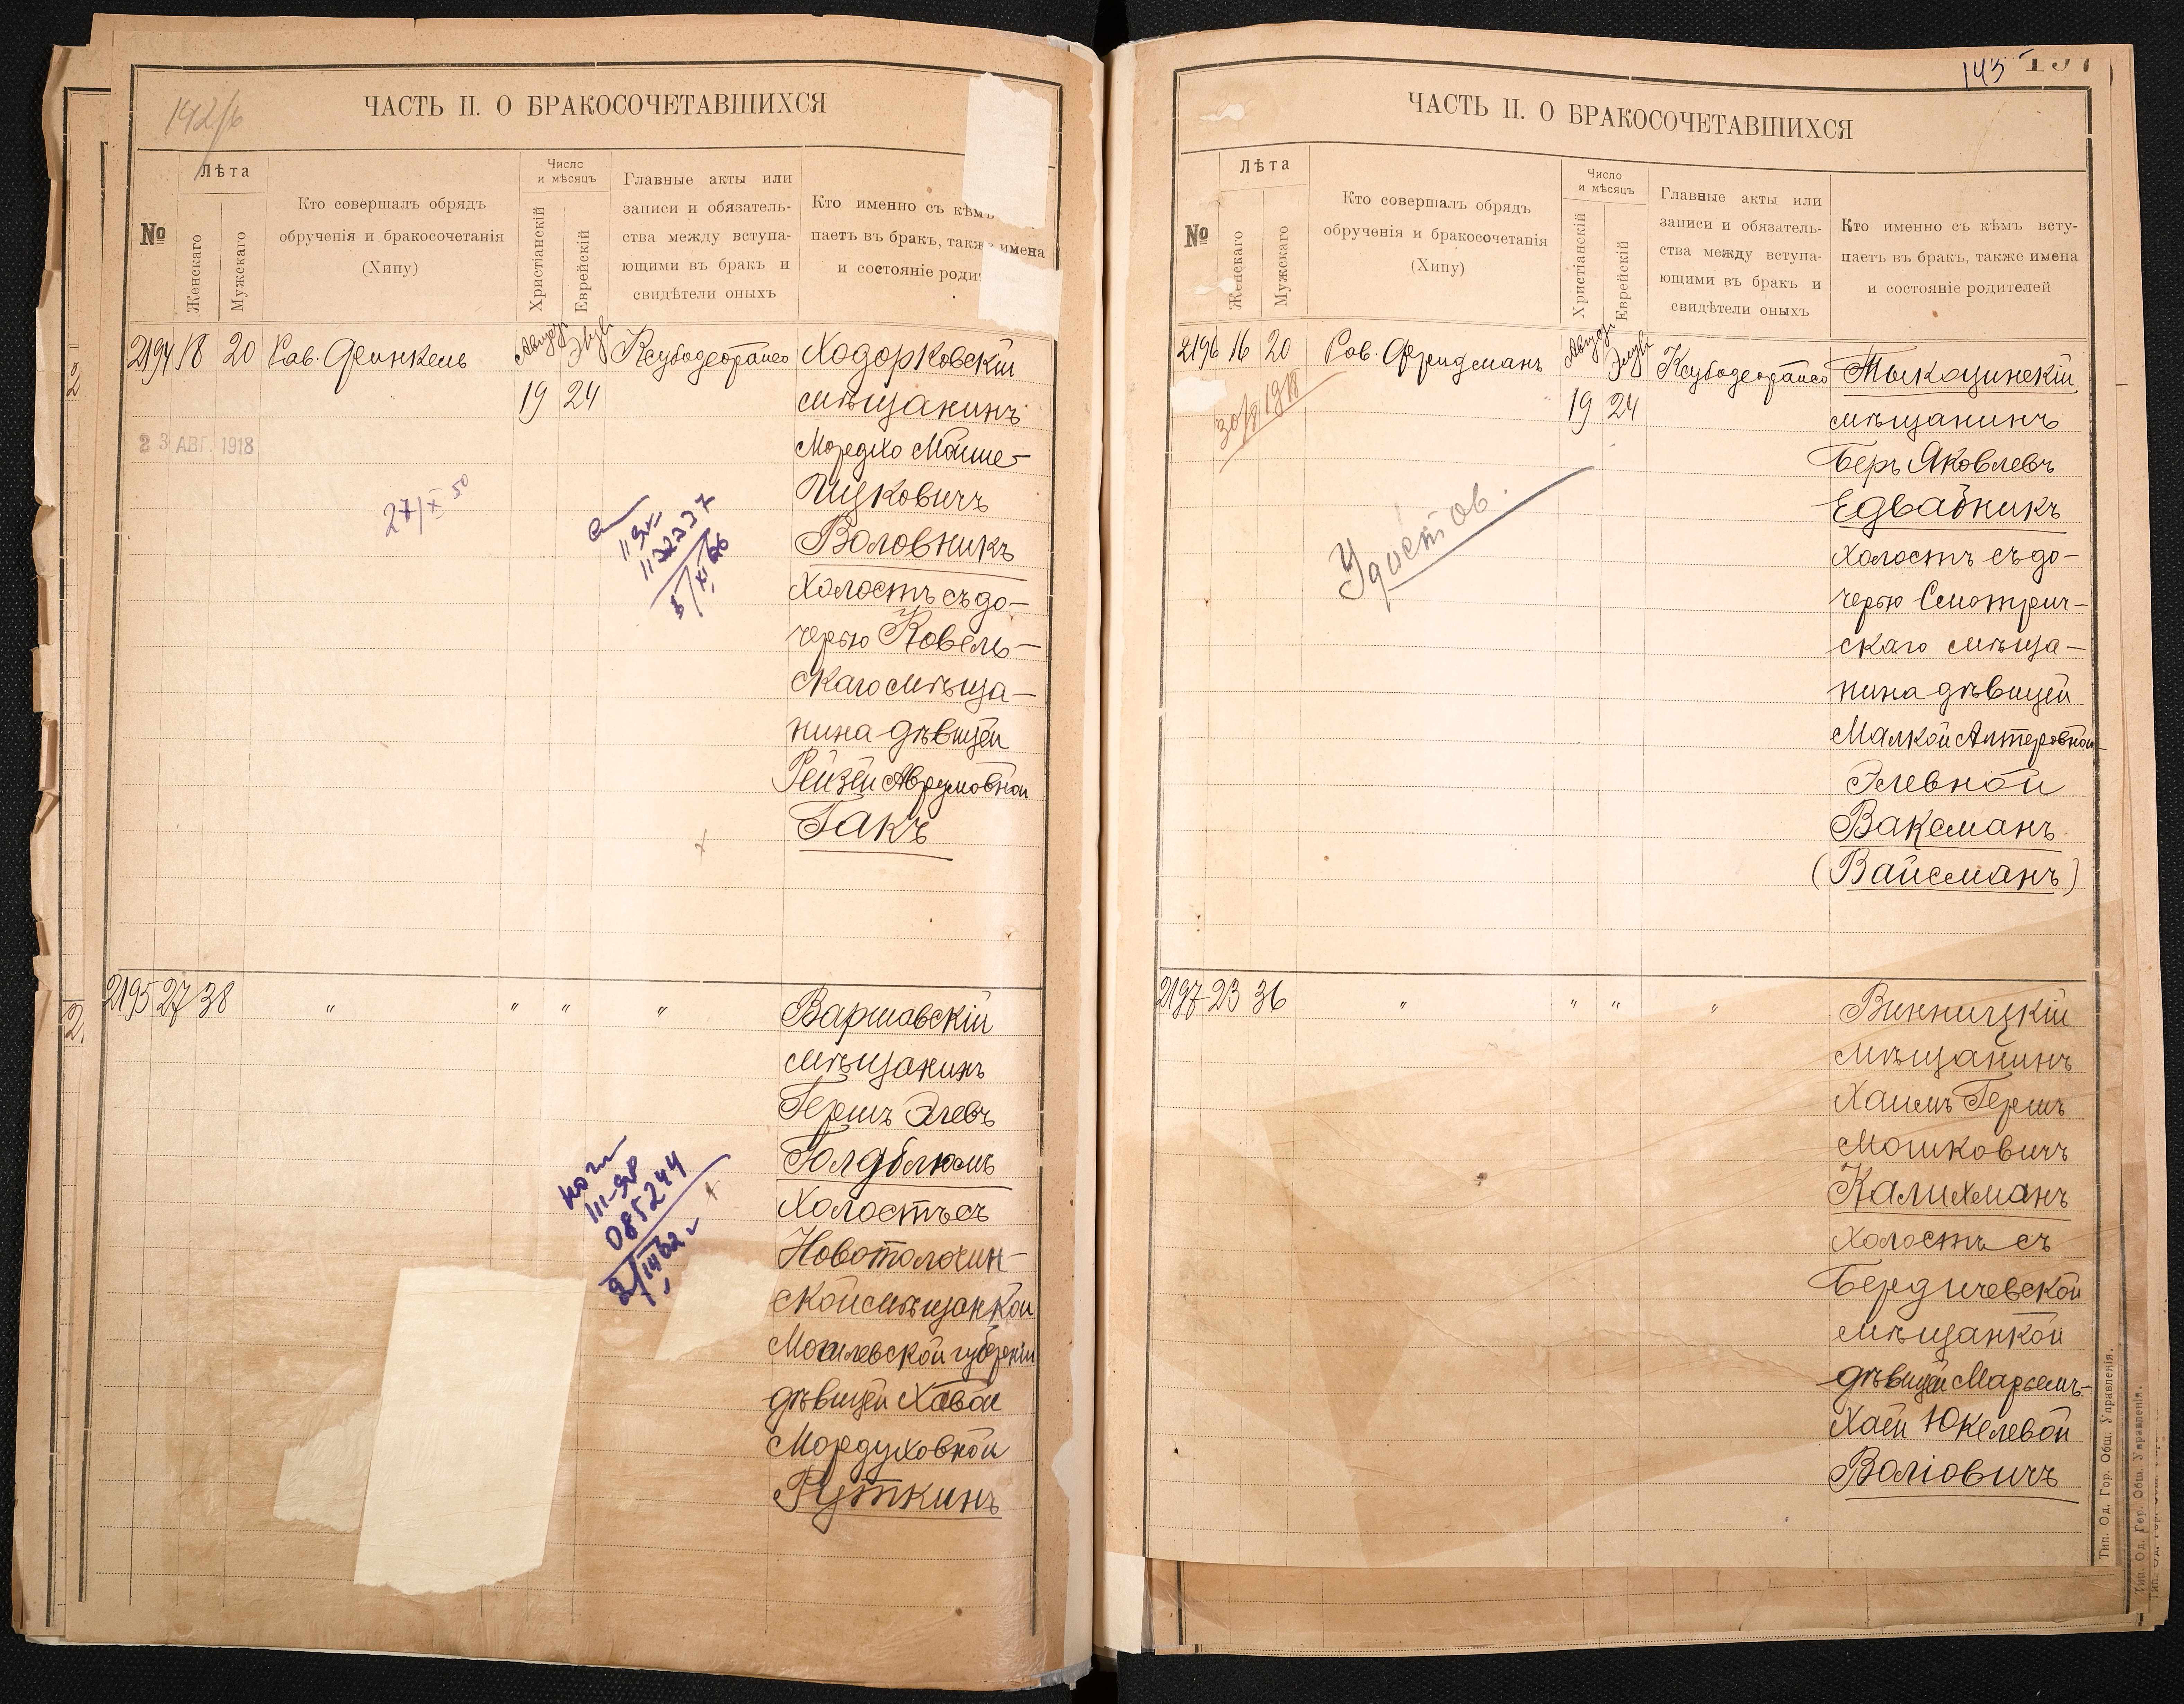 142/б
ЧАСТЬ II. О БРАКОСОЧЕТАВШИХСЯ
№
Лѣта
Женскаго
Мужскаго
Кто совершалъ обрядъ
обрученія и бракосочетанія
(Хипу)
Число
и мѣсяцъ
Христіанскій
Еврейскій
Главные акты или
записи и обязатель-
ства между вступа-
ющими въ бракъ и
свидѣтели оныхъ
Кто именно съ кѣмъ
паетъ въ бракъ, также имена
и состояніе роди
2194 18 20 Рав. Френкель Август Элул Ксубодеорайсо Ходорковскій
19 24 мѣщанинъ
23 АВГ. 1918
Мордхо Мойше-
Ицковичъ
27/XI 50
Воловникъ
холостъ съ до-
черью Ковель-
скаго мѣща-
нина дѣвицей
Рейзей Аврумовной
Гакъ
2195 27 38 " " " " Варшавскій
мѣщанинъ
Гершъ Элевъ
Голдблюмъ
холостъ съ
III-ЯР
085244
Новотолочин-
ской мѣщанкой
Могилевской губерніи
дѣвицей Ховой
Мордуховной
Гуткинъ
145
ЧАСТЬ II. О БРАКОСОЧЕТАВШИХСЯ
№
Лѣта
Женскаго
Мужскаго
Кто совершалъ обрядъ
обрученія и бракосочетанія
(Хипу)
Число
и мѣсяцъ
Христіанскій
Еврейскій
Главные акты или
записи и обязатель-
ства между вступа-
ющими въ бракъ и
свидѣтели оныхъ
Кто именно съ кѣмъ всту-
паетъ въ бракъ, также имена
и состояніе родителей
2196 16 20 Рав. Фридманъ Август Элул Ксубодеорайсо Тыкоцинскій
30/8 1918
19 24 мѣщанинъ
Беръ Яковлевъ
Едвабникъ
Удостов.
холостъ съ до-
черью Смотрич-
скаго мѣща-
нина дѣвицей
Малкой Алтеровной-
Элевной
Ваксманъ
(Вайсманъ)
2197 23 36 " " " " Винницкій
мѣщанинъ
Хаимъ Гершъ
Мошковичъ
Калихманъ
холостъ съ
Бердичевской
мѣщанкой
дѣвицей Марьемъ-
Хаей Юкелевой
Воліовичъ
Тип. Од. Гор. Общ. Управленія.
Тип. Од. Гор. Общ. Управленія.